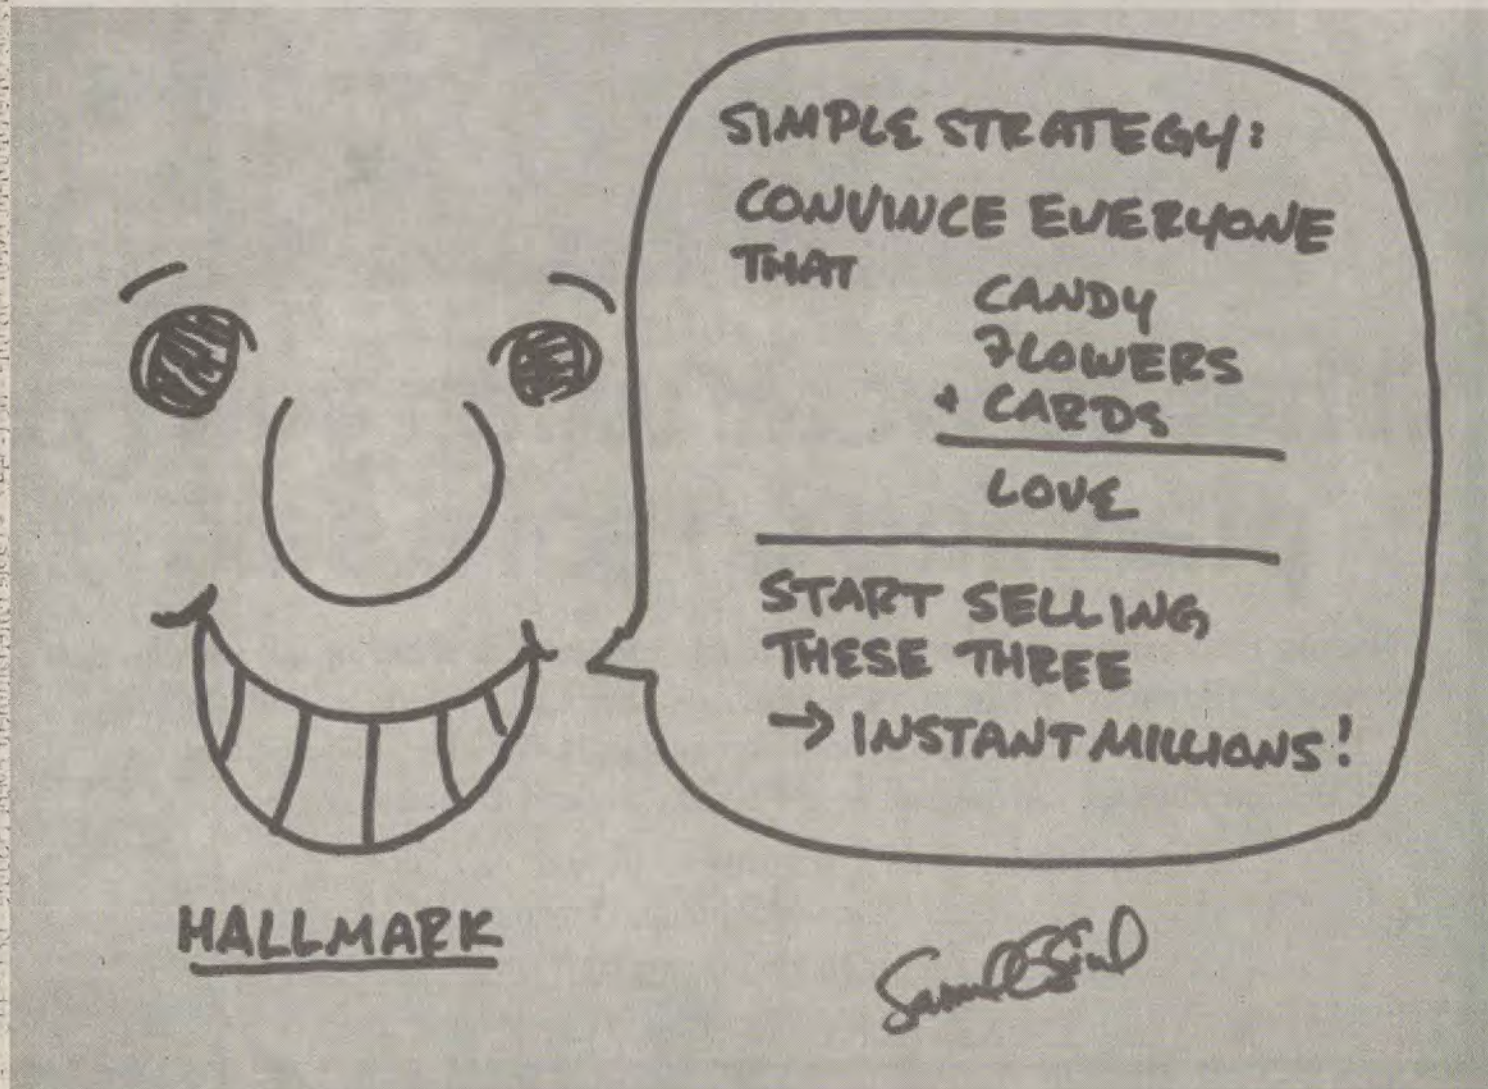 SIMPLE STRATEGY:
CONVINCE EVERYONE
THAT
CANDY
FLOWERS
+ CARDS
LOVE
START SELLING
THESE THREE
→ INSTANT MILLIONS!
HALLMARK